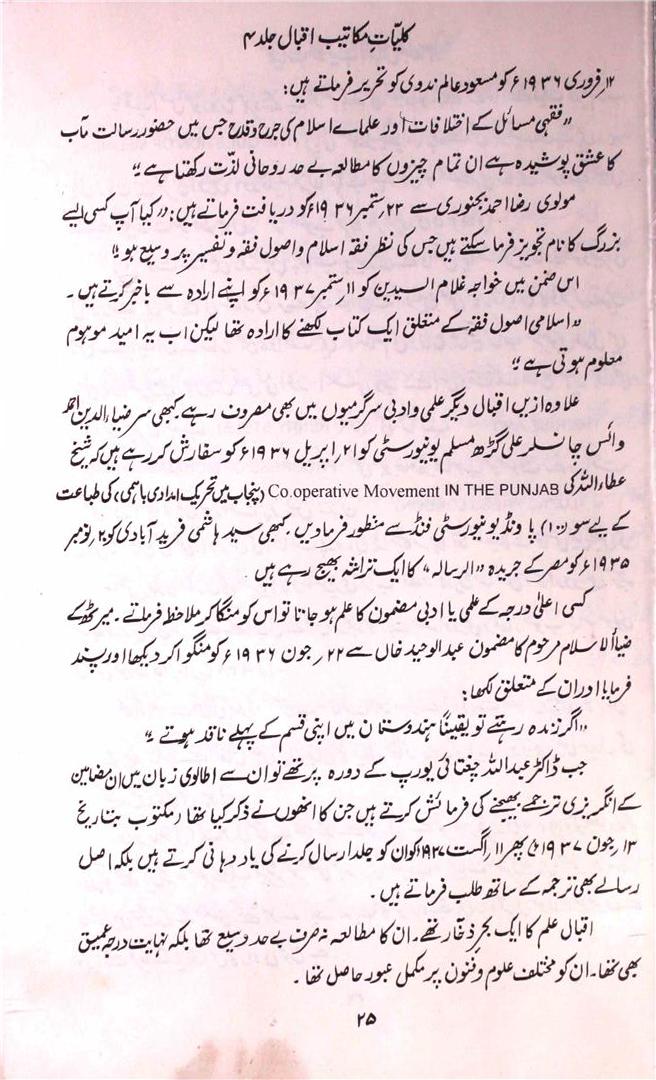 کلیّاتِ مکاتیب اقبال جلد ۴
۱۲؍فروری ۱۹۳۶ء کو مسعود عالم ندوی کو تحریر فرماتے ہیں:
”فقہی مسائل کے اختلافات اور علمائے اسلام کی جرح و قدح جس میں حضور رسالت مآب
کا عشق پوشیدہ ہے ان تمام چیزوں کا مطالعہ بے حد روحانی لذّت رکھتا ہے“
مولوی رضا احمد بجنوری سے ۲۳ ستمبر ۱۹۳۶ء کو دریافت فرماتے ہیں: ”کیا آپ کسی ایسے
بزرگ کا نام تجویز فرما سکتے ہیں جس کی نظر فقہ اسلام و اصول فقہ و تفسیر پر وسیع ہو“
اس ضمن میں خواجہ غلام السیدین کو ۱۱؍ستمبر ۱۹۳۷ء کو اپنے ارادہ سے باخبر کرتے ہیں۔
”اسلامی اصول فقہ کے متعلق ایک کتاب لکھنے کا ارادہ تھا لیکن اب یہ امید موہوم
معلوم ہوتی ہے“
علاوہ ازیں اقبال دیگر علمی و ادبی سرگرمیوں میں بھی مصروف رہے۔ کبھی سر ضیاء الدین احمد
وائس چانسلر علی گڑھ مسلم یونیورسٹی کو ۲۱؍اپریل ۱۹۳۶ء کو سفارش کر رہے ہیں کہ شیخ
عطاء اللہ کی Co.operative Movement IN THE PUNJAB (پنجاب میں تحریک امدادی باہمی) کی طباعت
کے لیے سو (۱۰۰) پاونڈ یونیورسٹی فنڈ سے منظور فرما دیں۔ کبھی سید ہاشمی فرید آبادی کو ۲؍نومبر
۱۹۳۵ء کو مصر کے جریدہ ”الرسالہ“ کا ایک تراشہ بھیج رہے ہیں
کسی اعلیٰ درجہ کے علمی یا ادبی مضمون کا علم ہو جاتا تو اس کو منگا کر ملاحظہ فرماتے۔ میرٹھ کے
ضیاء الاسلام مرحوم کا مضمون عبد الوحید خاں سے ۲۲؍جون ۱۹۳۶ء کو منگوا کر دیکھا اور پسند
فرمایا اور ان کے متعلق لکھا:
”اگر زندہ رہتے تو یقیناً ہندوستان میں اپنی قسم کے پہلے ناقد ہوتے“
جب ڈاکٹر عبد اللہ چغتائی یورپ کے دورہ پر تھے تو ان سے اطالوی زبان میں ان مضامین
کے انگریزی ترجمے بھیجنے کی فرمائش کرتے ہیں جن کا انھوں نے ذکر کیا تھا (مکتوب بتاریخ
۱۳؍جون ۱۹۳۷ء) پھر ۱۱؍اگست ۱۹۳۷ء کو ان کو جلد ارسال کرنے کی یاد دہانی کرتے ہیں بلکہ اصل
رسالے بھی ترجمہ کے ساتھ طلب فرماتے ہیں۔
اقبال علم کا ایک بحرِ ذخّار تھے۔ ان کا مطالعہ نہ صرف بے حد وسیع تھا بلکہ نہایت درجہ عمیق
بھی تھا۔ ان کو مختلف علوم و فنون پر مکمل عبور حاصل تھا۔
۲۵